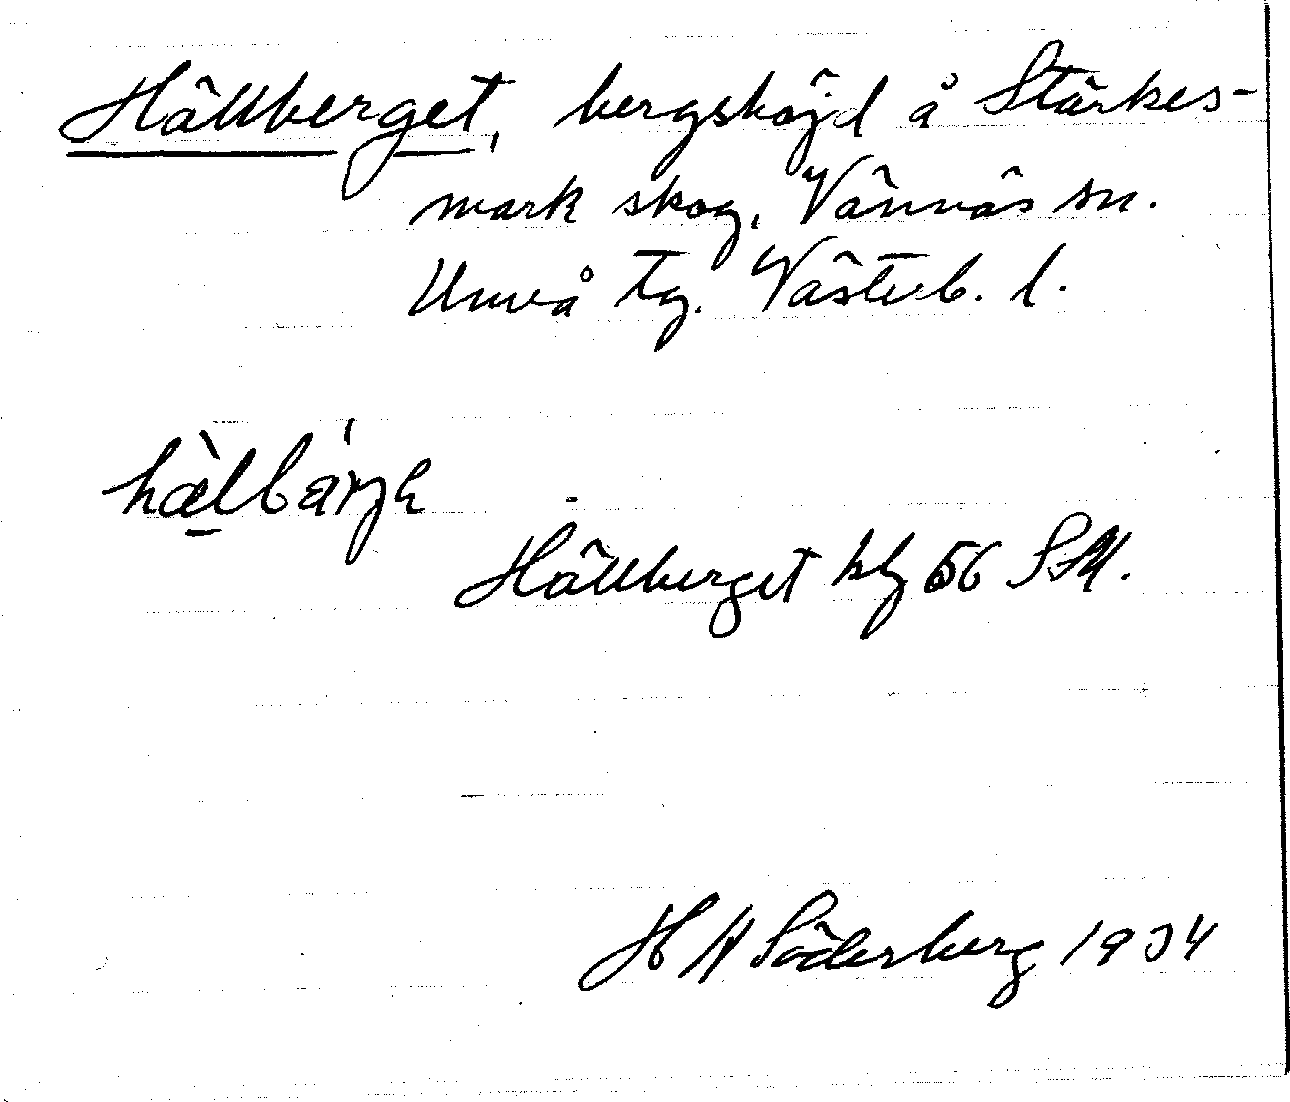 Hällberget, bergshöjd å Stärkes-
mark skog, Vännäs sn.
Umeå tg. Västerb. l.
hæ̀lbá̱rjɛ
Hällberget bl 56 SM.
H A Söderberg 1934